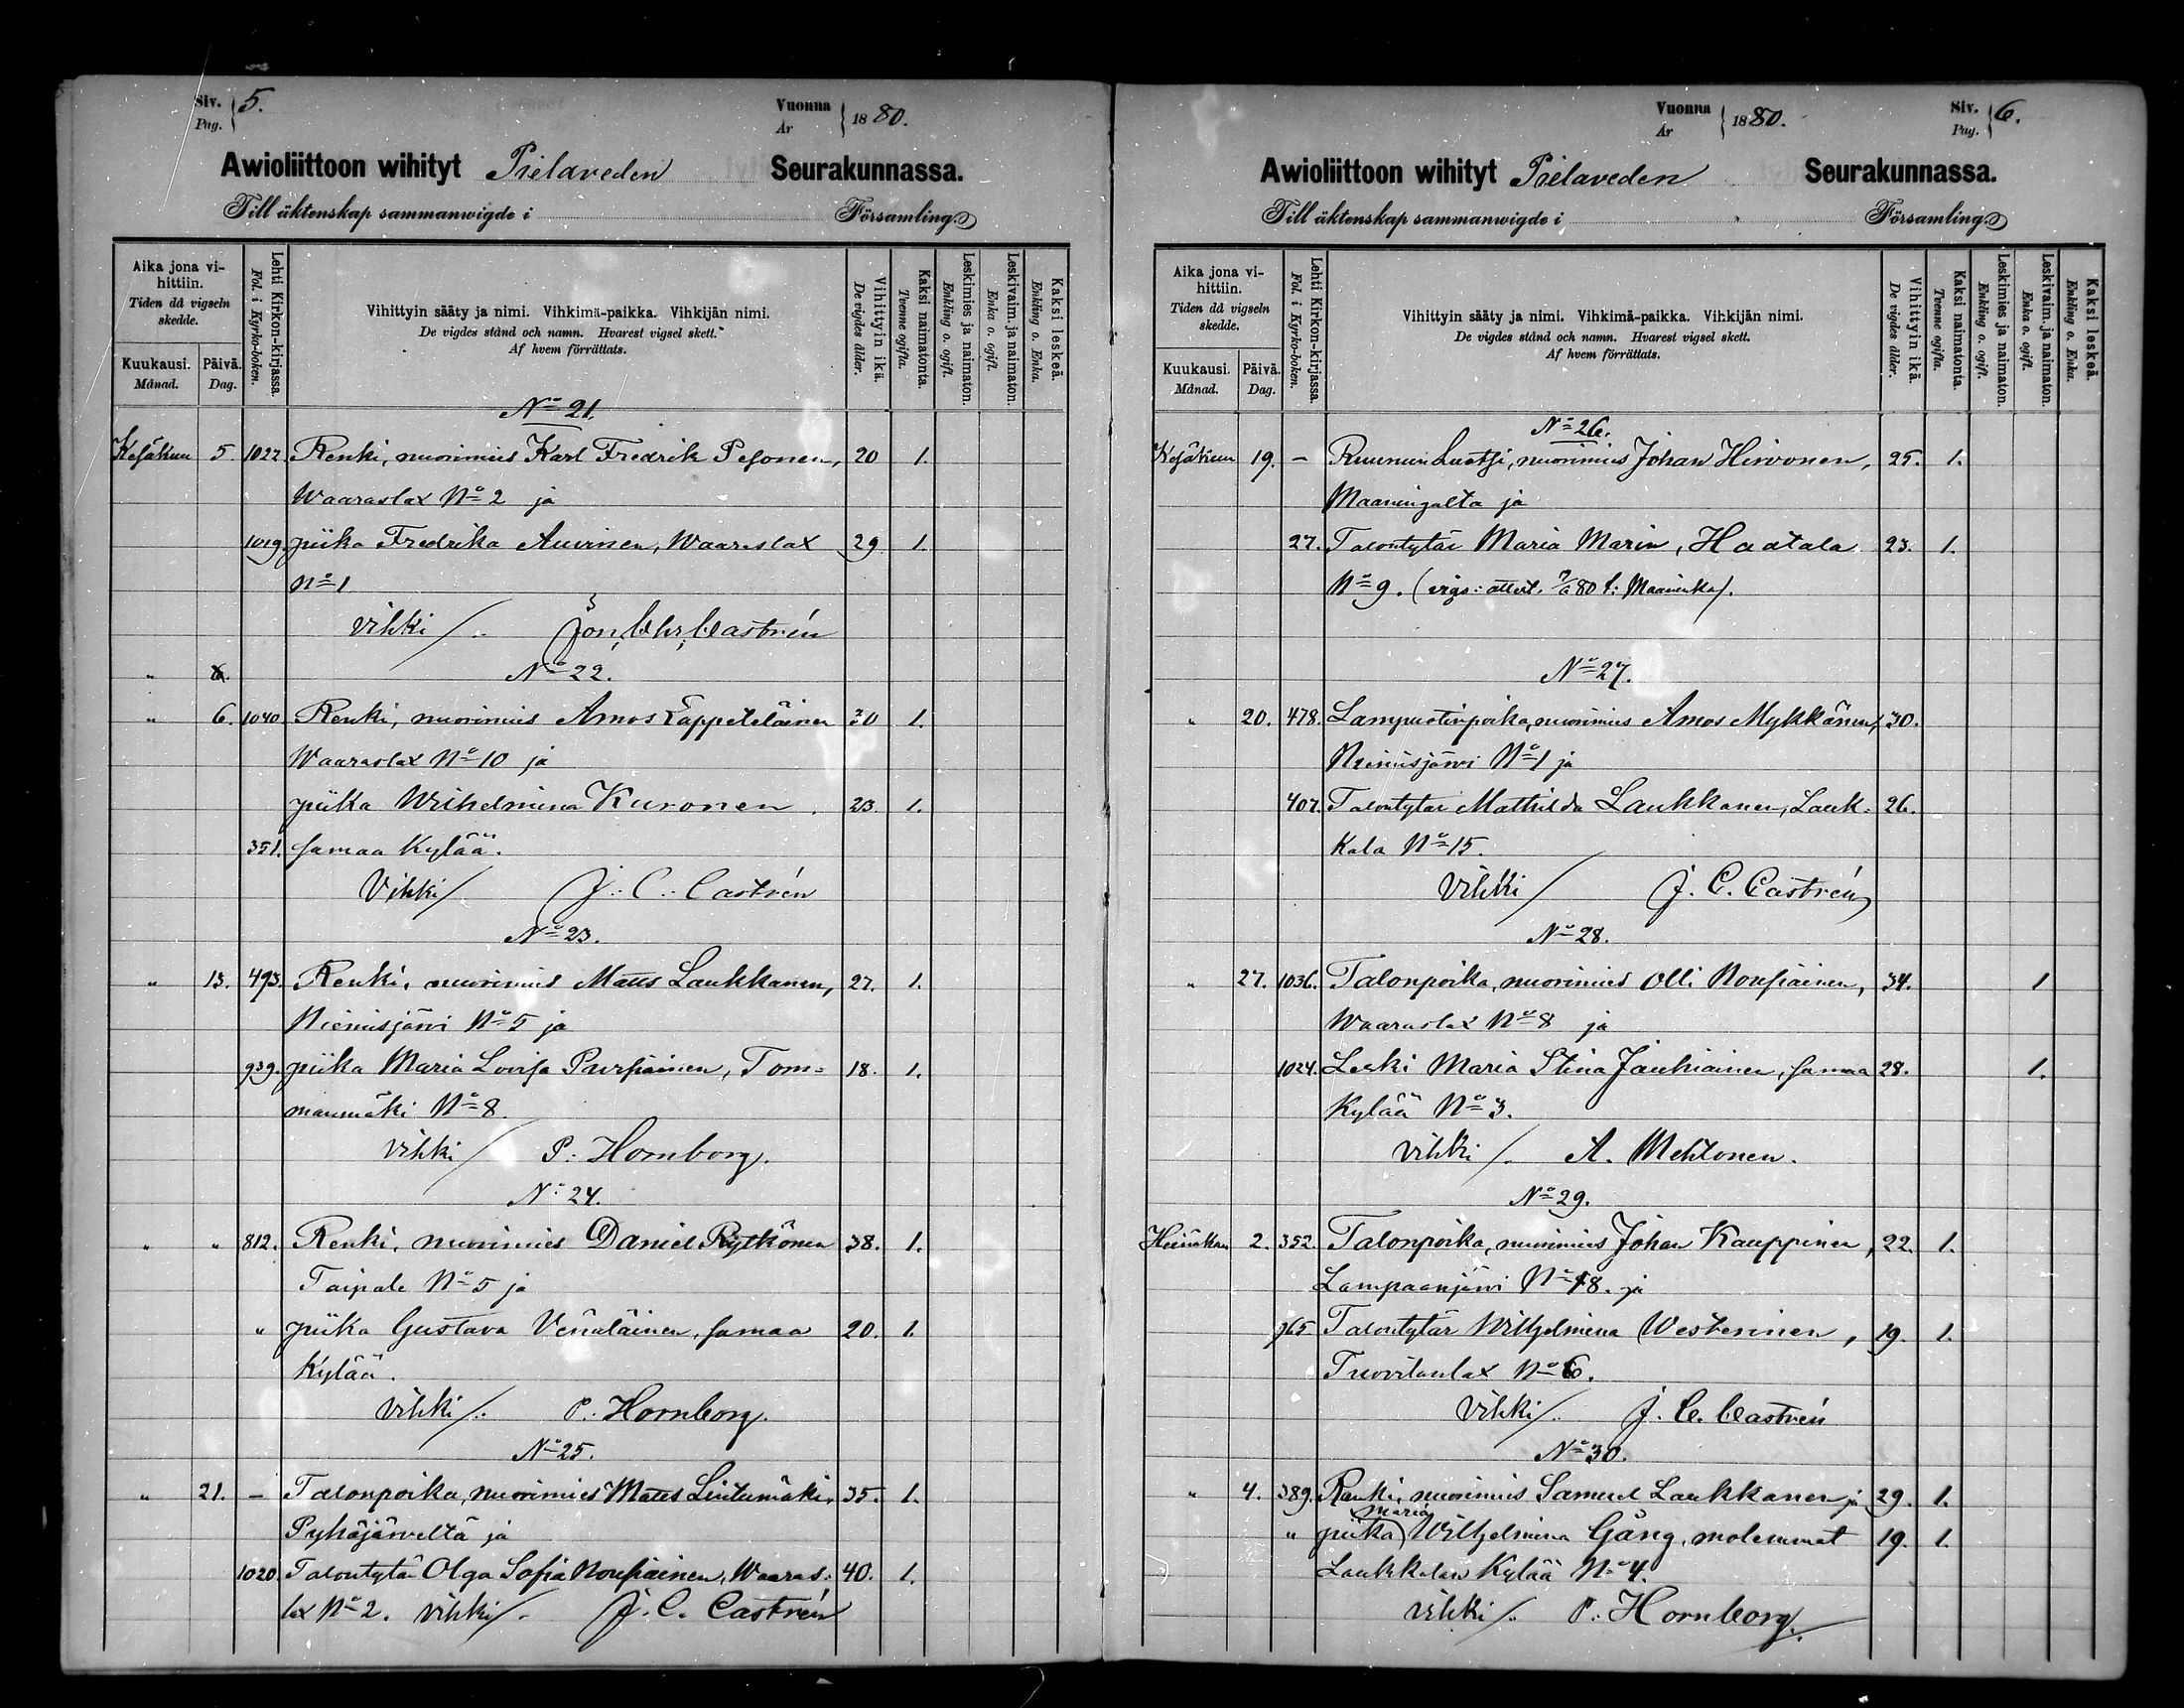 Siv. Pag. 5.
Vuonna År 1880.
Awioliittoon wihityt Pielaveden Seurakunnassa.
Till äktenskap sammanwigde i Församling.
Aika jona vihittiin. Tiden då vigseln skedde.
Kuukausi. Månad.
Päivä. Dag.
Lehti Kirkon-kirjassa. Fol. i Kyrko-boken.
Vihittyin sääty ja nimi. Vihkimä-paikka. Vihkijän nimi.
De vigdes stånd och namn. Hvarest vigsel skett.
Af hvem förrättats.
Vihittyin ikä. De vigdes ålder.
Kaksi naimatonta. Tvenne ogifta.
Leskimies ja naimaton. Enkling o. ogift.
Leskivaim. ja naimaton. Enka o. ogift.
Kaksi leskeä. Enkling o. Enka.
No 21.
Kesäkuu 5. 1022. Renki, nuorimies Karl Fredrik Pesonen, 20 1.
Waaraslax No 2 ja
1019. piika Fredrika Auvinen, Waaraslax 29 1.
No 1
vihki /. Jon. Chr. Castrén
" 6. No 22.
" 6. 1040. Renki, nuorimies Amos Lappeteläinen 30 1.
Waaraslax No 10 ja
piika Wilhelmina Kuronen. 23. 1.
351. samaa Kylää.
Vihki / J. C. Castrén
No 23.
" 13. 493. Renki, nuorimies Matts Laukkanen, 27. 1.
Niemisjärvi No 5 ja
939. piika Maria Lovisa Pursiainen, Tom= 18. 1.
manmäki No 8.
vihki / P. Hornborg.
No 24.
" " 812. Renki, nuorimies Daniel Rytkönen 38. 1.
Taipale No 5 ja
" piika Gustava Venäläinen, samaa 20. 1.
Kylää.
vihki /. P. Hornborg.
No 25.
" 21. – Talonpoika, nuorimies Matts Lintumäki, 35. 1.
Pyhäjärveltä ja
1020. Talontytär Olga Sofia Nousiainen, Waaras= 40. 1.
lax No 2. vihki /. J. C. Castrén
Vuonna År 1880.
Siv. Pag. 6.
Awioliittoon wihityt Pielaveden Seurakunnassa.
Till äktenskap sammanwigde i Församling.
Aika jona vihittiin. Tiden då vigseln skedde.
Kuukausi. Månad.
Päivä. Dag.
Lehti Kirkon-kirjassa. Fol. i Kyrko-boken.
Vihittyin sääty ja nimi. Vihkimä-paikka. Vihkijän nimi.
De vigdes stånd och namn. Hvarest vigsel skett.
Af hvem förrättats.
Vihittyin ikä. De vigdes ålder.
Kaksi naimatonta. Tvenne ogifta.
Leskimies ja naimaton. Enkling o. ogift.
Leskivaim. ja naimaton. Enka o. ogift.
Kaksi leskeä. Enkling o. Enka.
No 26.
Kesäkuu 19. – Ruunun Luotsi, nuorimies Johan Hirvonen, 25. 1.
Maaningalta ja
27. Talontytär Maria Marin, Haatala 23. 1.
No 9. (vigs: attest. 80 f: Maaninka).
No 27.
" 20. 478. Lampuotinpoika, nuorimies Amos Mykkänen, 30.
Niemisjärvi No 1 ja
407. Talontytär Mathilda Laukkanen, Lauk= 26.
kala No 15.
vihki / J. C. Castrén
No 28.
" 27. 1036. Talonpoika, nuorimies Olli Nousiainen, 34. 1
Waaraslax No 8 ja
1024. Leski Maria Stina Jauhiainen, samaa 28. 1.
Kylää No 3.
vihki /. A. Mehtonen.
No 29.
Heinäkuu 2. 352. Talonpoika, nuorimies Johan Kauppinen, 22. 1.
Lampaanjärvi No 18. ja
965. Talontytär Wilhelmina Westerinen, 19. 1.
Tuovilanlax No 6.
vihki /. J. C. Castrén
No 30.
" 4. 389. Renki, nuorimies Samuel Laukkanen ja 29. 1.
" piika Maria Wilhelmina Gång, molemmat 19. 1.
Laukkalan Kylää No 4.
vihki /. P. Hornborg.